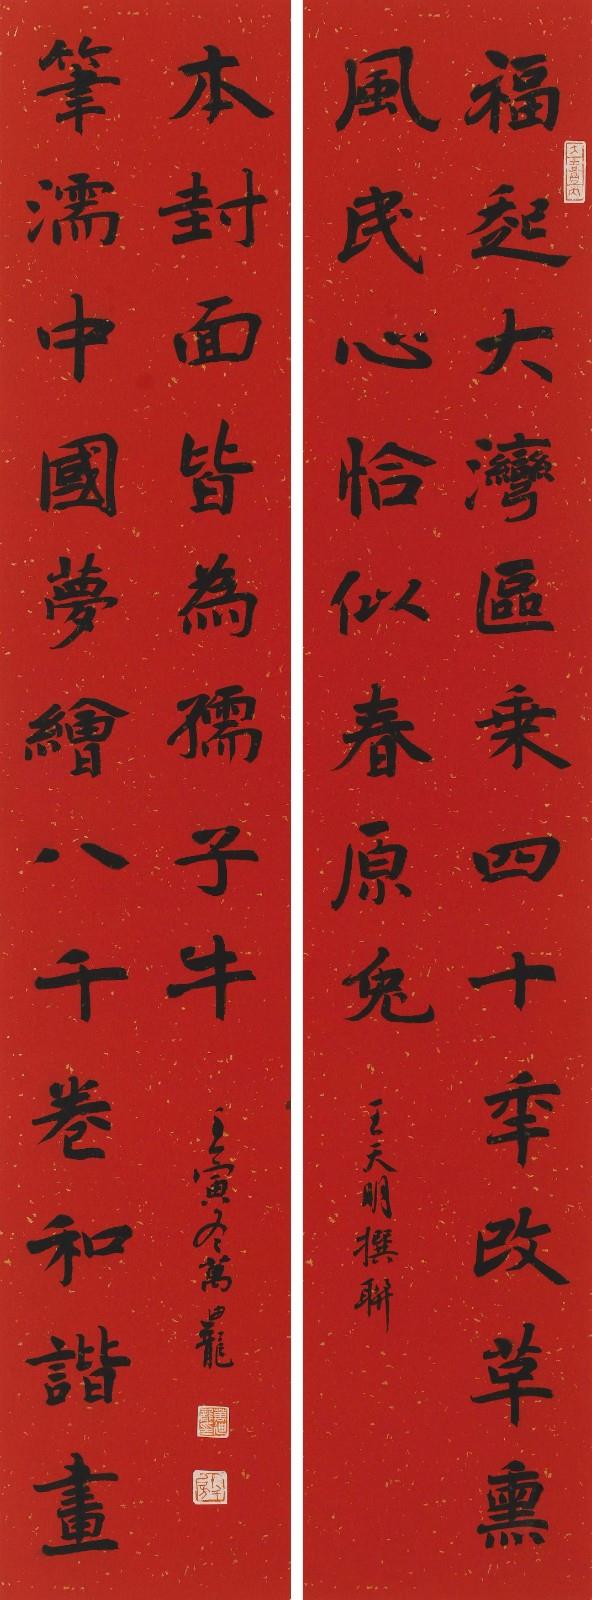 福起大灣區乘四十年改革熏
風民心恰似春原兔
王天明撰聯
筆濡中國夢繪八千卷和諧畫
本封面皆為孺子牛
壬寅冬萬龍